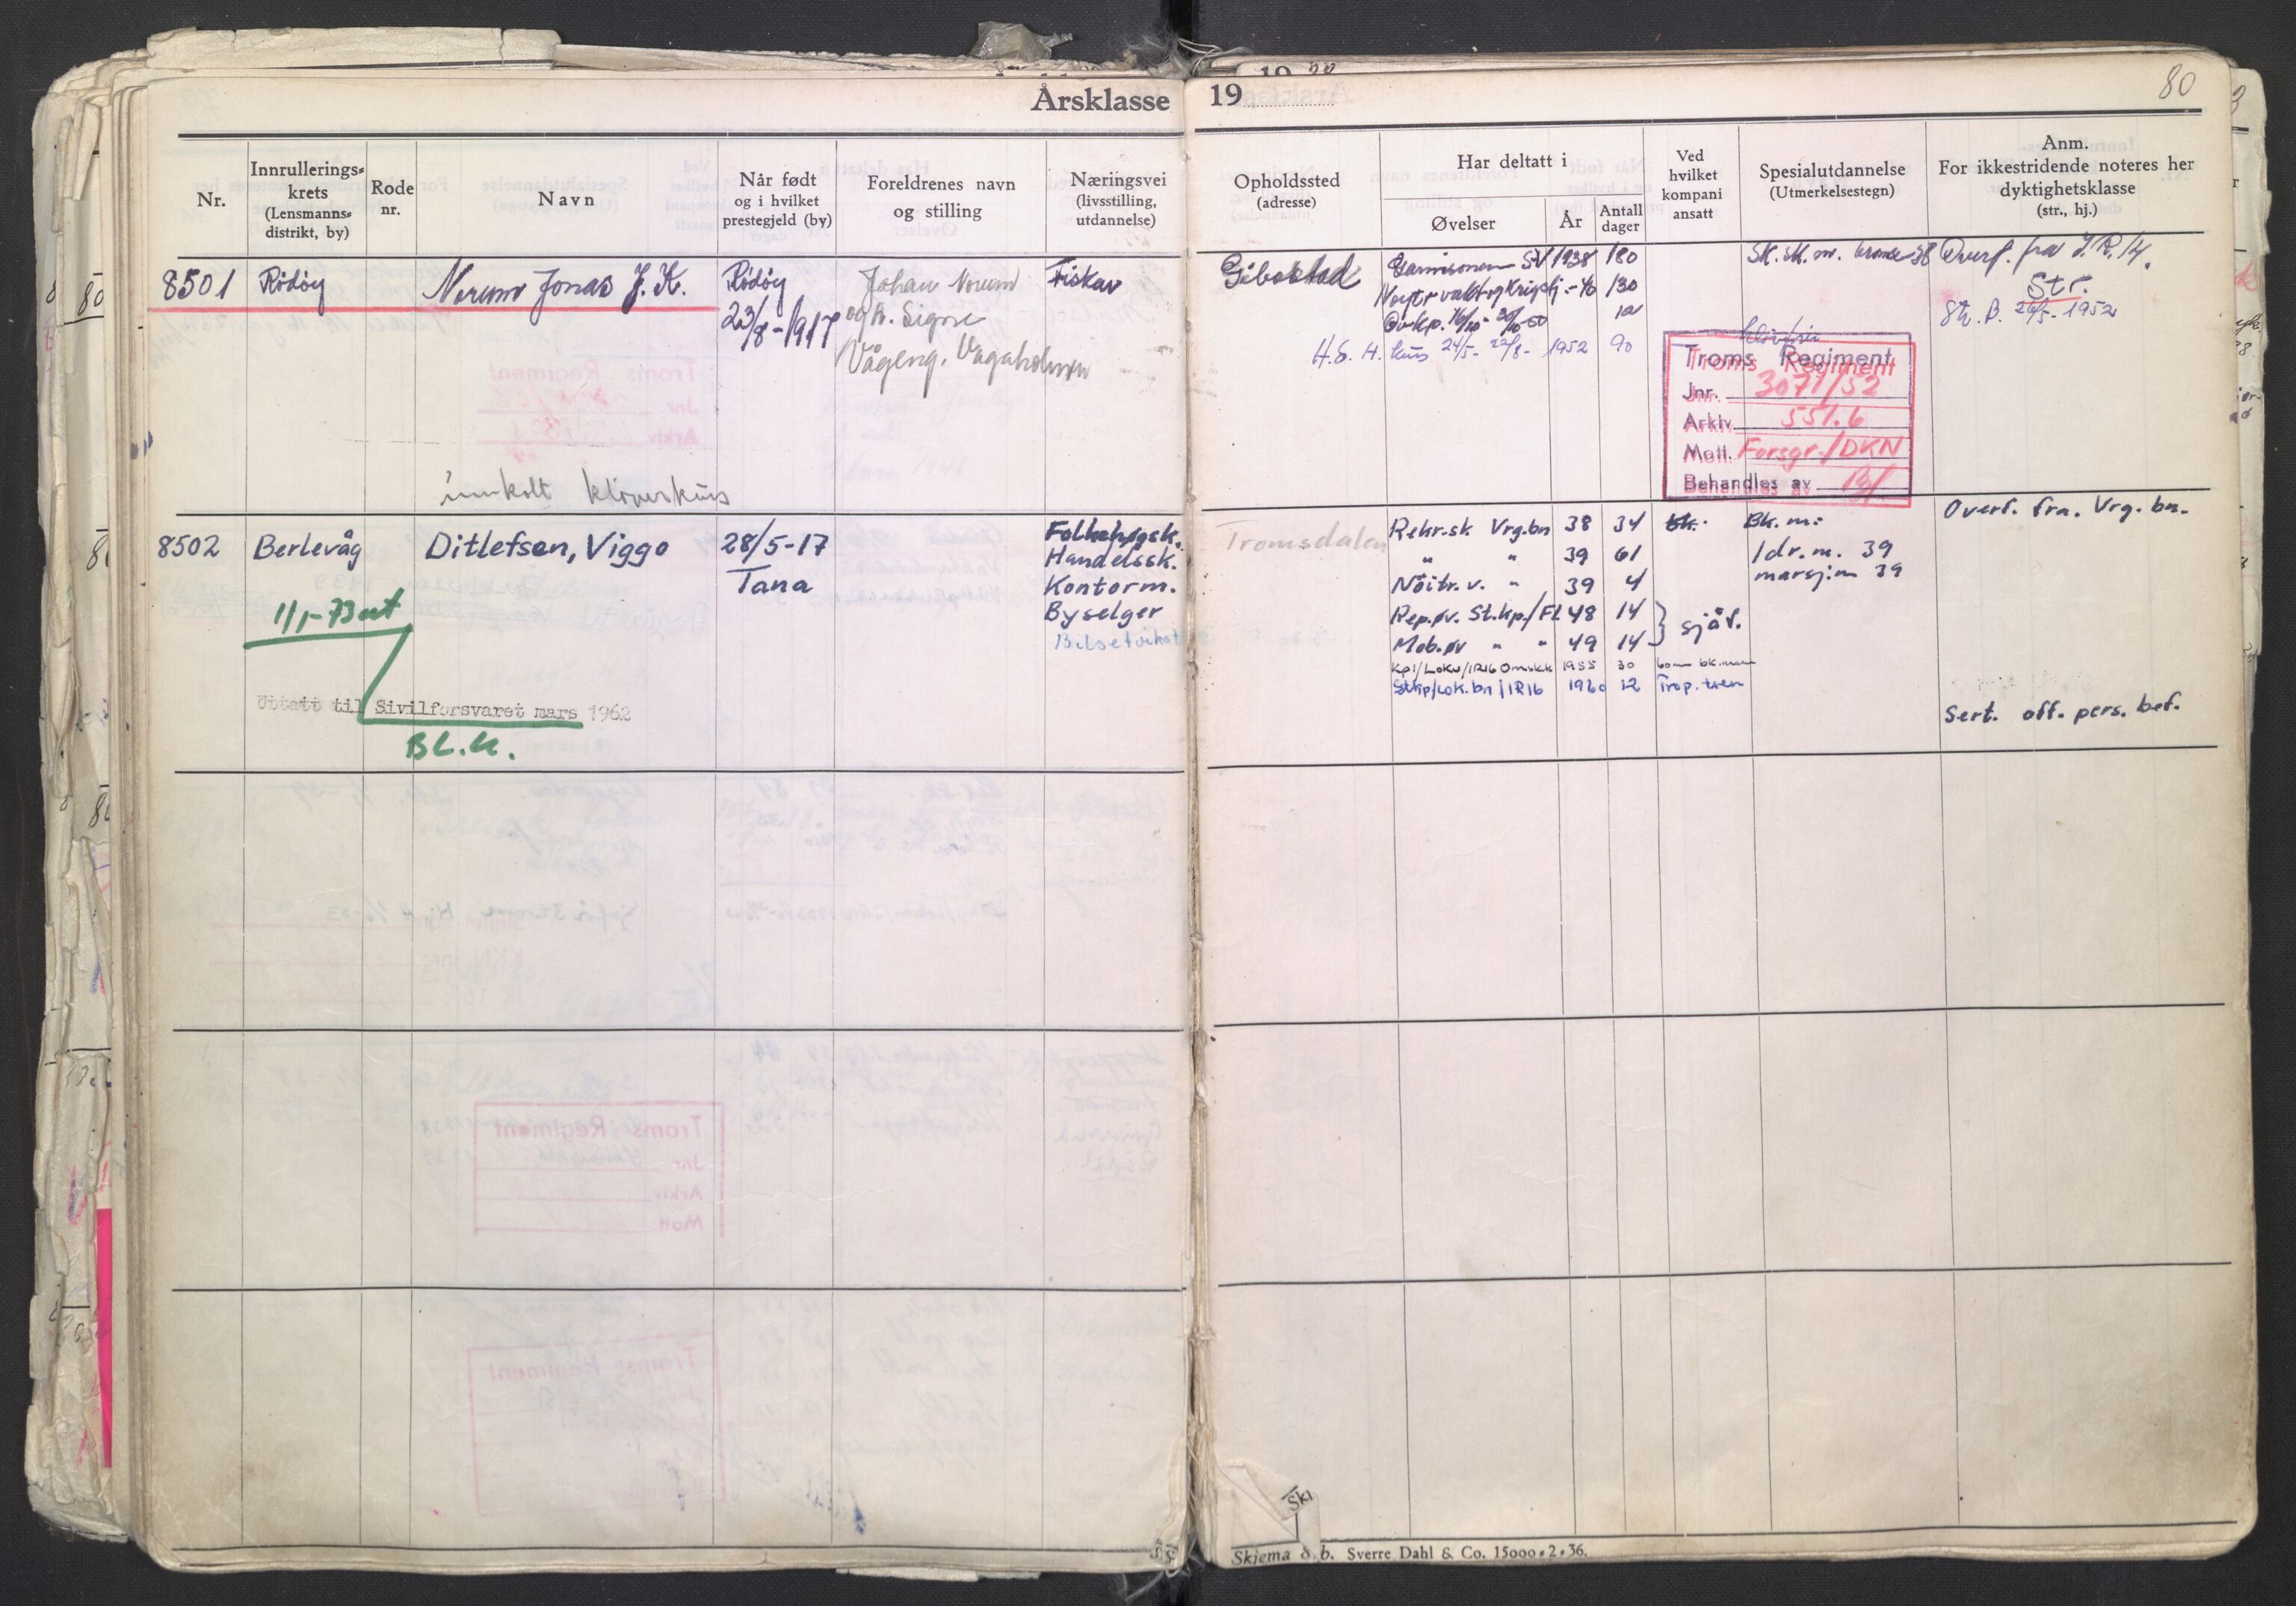 Årsklasse 19
80
Nr.
Innrullerings=
krets
(Lensmanns=
distrikt, by)
Rode
nr.
Navn
Når født
og i hvilket
prestegjeld (by)
Foreldrenes navn
og stilling
Næringsvei
(livsstilling,
utdannelse)
Opholdssted
(adresse)
Har deltatt i
Øvelser
År
Antall
dager
Ved
hvilket
kompani
ansatt
Spesialutdannelse
(Utmerkelsestegn)
Anm.
For ikkestridende noteres her
dyktighetsklasse
(str., hj.)
8501
Rödöy
Norum Jonas J. K.
Rödöy
23/8-1917
Johan Norum
og h. Signe
Vågeng. Vågaholmen
Fisker
Gibostad
Garnisonen SV 1938 180
130
H. S. H. kurs 24/5- 22/8- 1952 90
Overf. fra I.R. 14.
Str.
Stp. B. 26/5- 1952
Troms Regiment
Jnr. 3071/52
Arkiv 551.6
Mott. Forsgr./DKN
Behandles av
innkalt kløverkurs
8502
Berlevåg
Ditlefsen, Viggo
28/5-17
Tana
Folkehøgsk.
Handelssk.
Kontorm.
Byselger
Tromsdalen
Rekr.sk Vrg.bn 38 34
" " 39 61
Nöitr. v. " 39 4
Rep.øv. St.kp./FL 48 14
Mob.øv " " 49 14
sjåf.
1955 30
Stkp/Lok.bn/IR16 1960 12 Trop. tren
Bk. m:
Idr. m. 39
marsj.m 39
Overf. fra. Vrg. bn.
Sert. off. pers. bef.
1/1-73 ut
Uttatt til Sivilforsvaret mars 1962
BL.K.
Skjema 8 b. Sverre Dahl & Co. 15000*2*36.